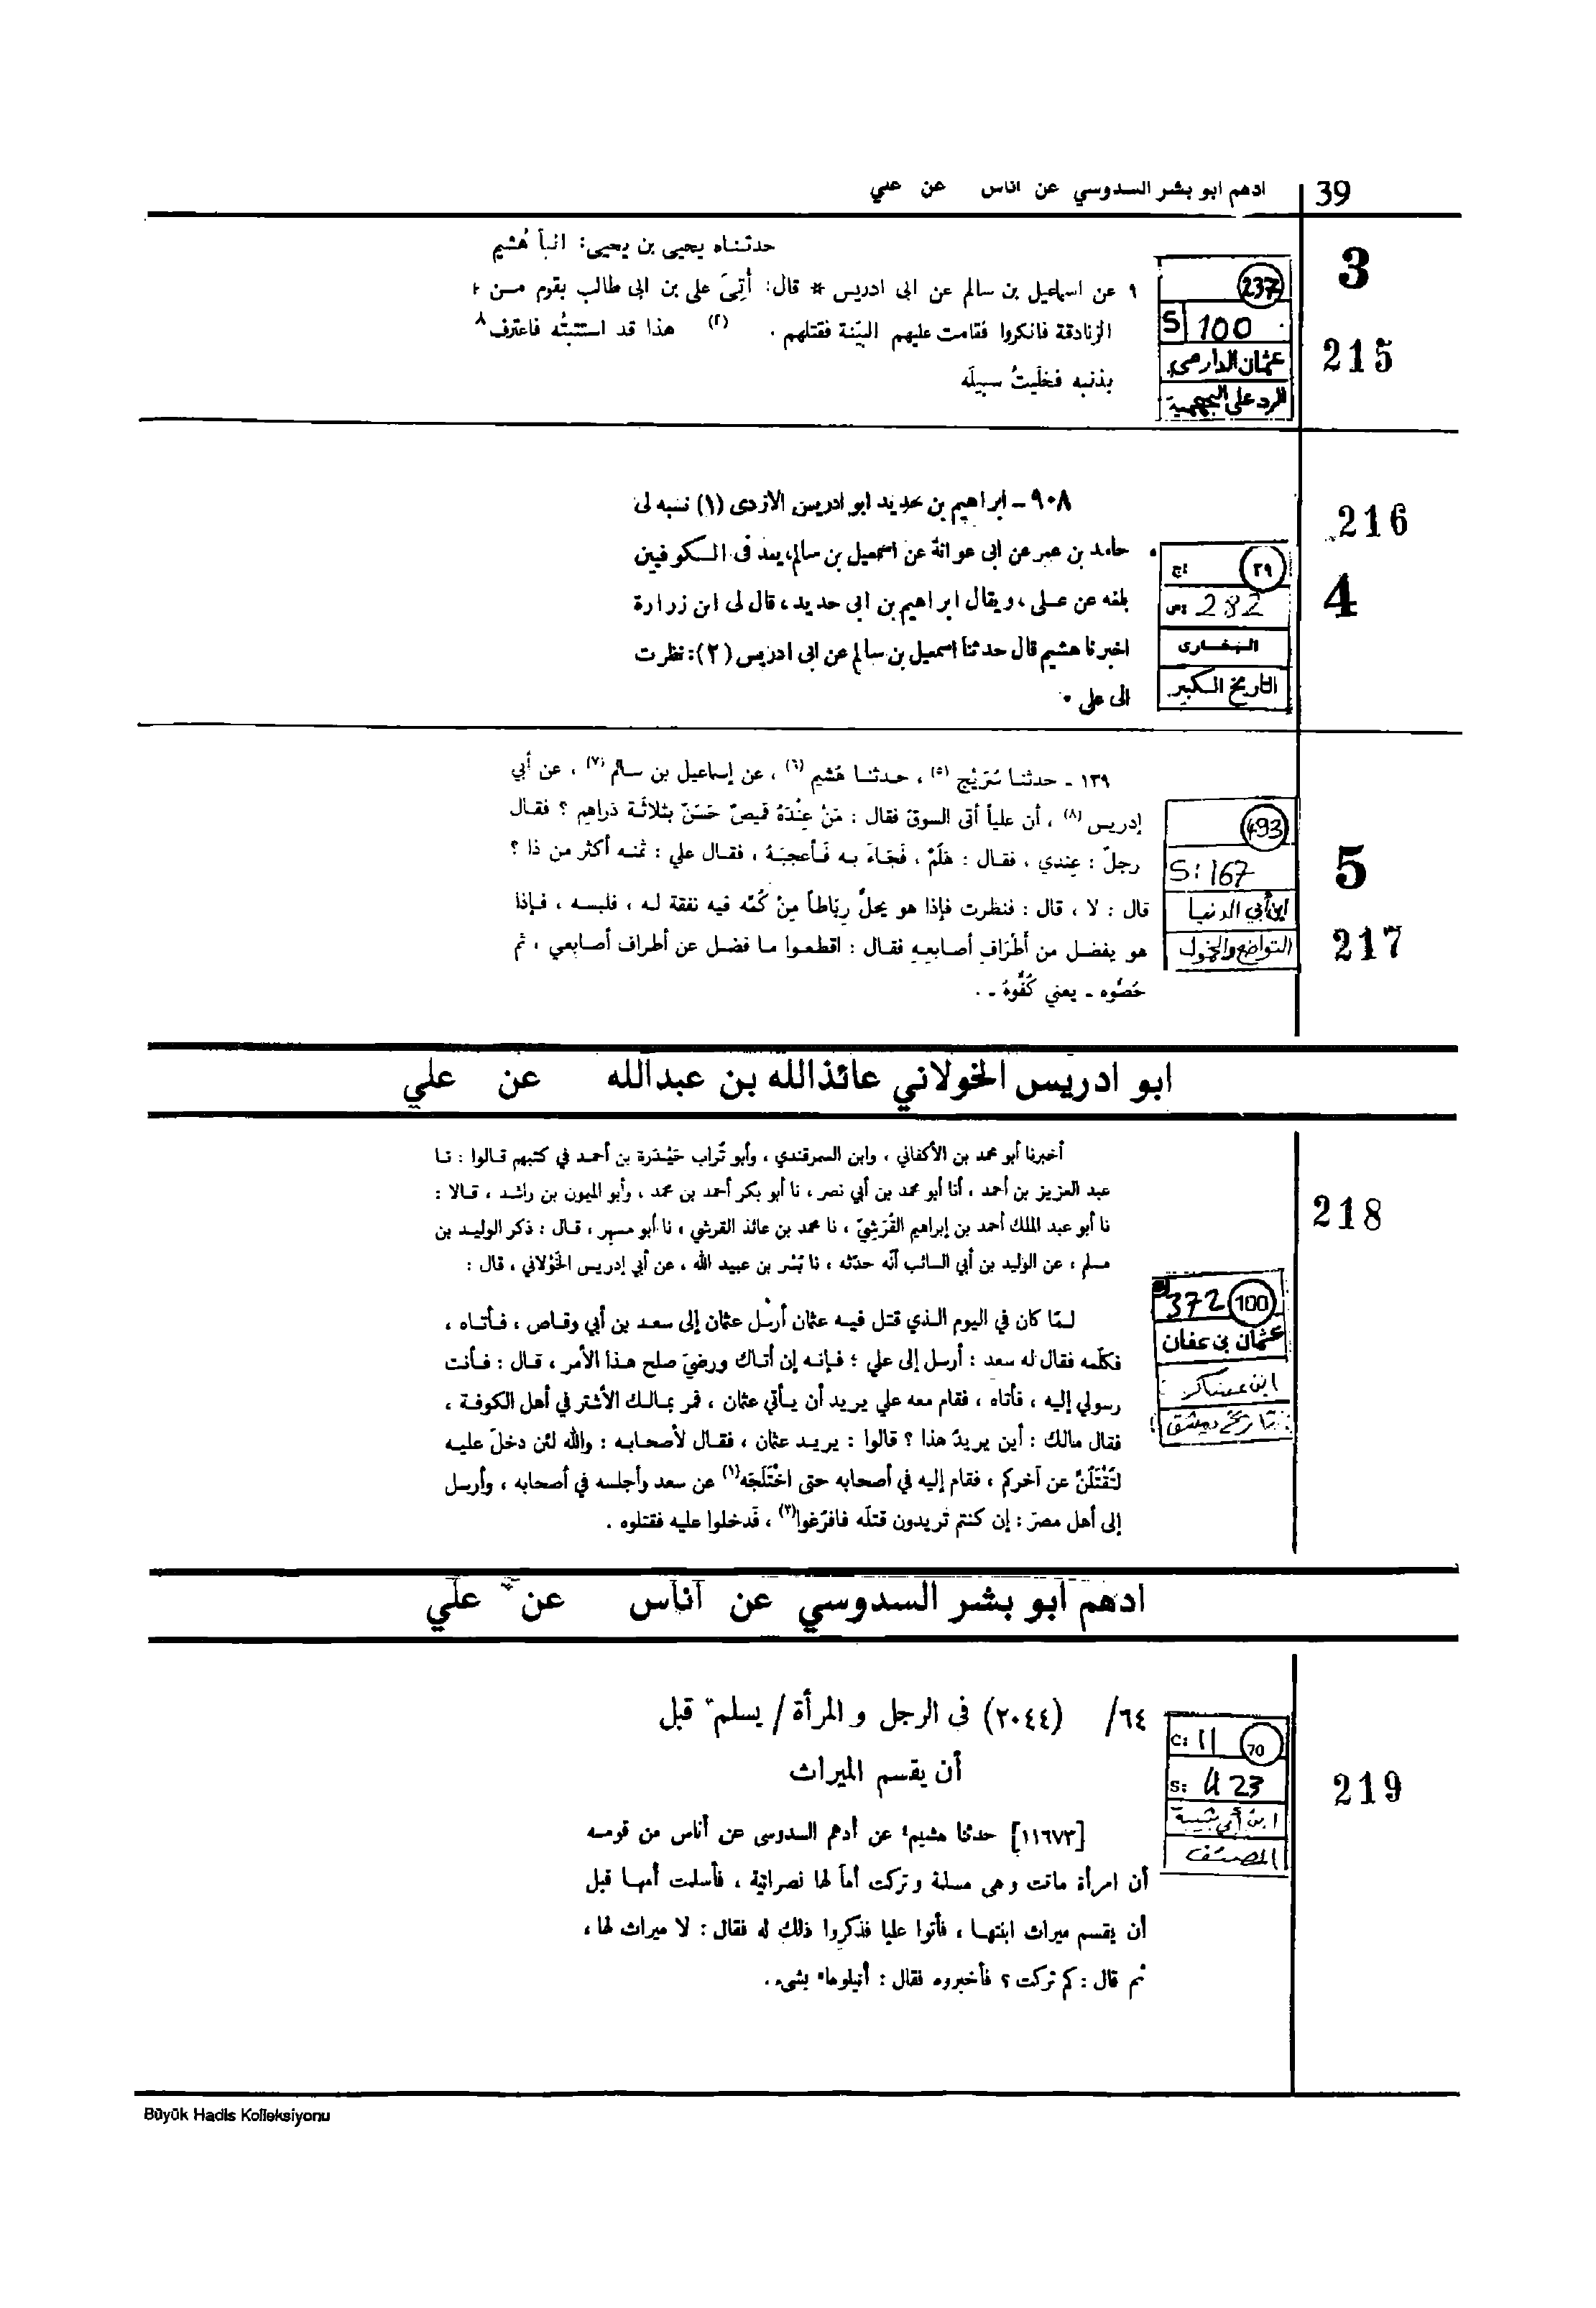 39
ادهم ابو بشر السدوسي عن اناس عن علي
3
215
237
S 100
عثمان الدارمي
الرد على الجهمية
حدثناه يحيى بن يحيى: انبأ هُشيم
٩ عن اسماعيل بن سالم عن ابى ادريس * قال: أُتِىَ على بن ابى طالب بقوم مـن
الزنادقة فانكروا فقامت عليهم البيّنة فقتلهم . (٢) هذا قد استتبتُه فاعترف ٨
بذنبه فخلّيتُ سبيلَه
216
4
٢٩ ج:
ص: 282
البخارى
التاريخ الكبير
٩٠٨ - ابراهيم بن حديد ابو ادريس الازدى (١) نسبه لى
حامد بن عمر عن ابى عوانة عن اسمعيل بن سالم، يعد فى الكوفيين
بلغه عن على ، ويقال ابراهيم بن ابى حديد ، قال لى ابن زرارة
اخبرنا هشيم قال حدثنا اسمعيل بن سالم عن ابى ادريس (٢): نظرت
الى على ٠
5
217
493
S: 167
ابن أبي الدنيا
التواضع والخمول
١٣٩ ـ حدثنـا سُرَيْج (٥) ، حـدثنـا هُشيم (٦) ، عن إسماعيل بن سـالم (٧) ، عن أبي
إدريس (٨) ، أن علياً أتى السوق فقال : مَنْ عِنْدَهُ قميصٌ حَسَنٌ بثلاثَة دَراهِم ؟ فقـال
رجلٌ : عِندي ، فقـال : هَلُمَّ ، فَجَاءَ بـه فَـأعجبَهُ ، فقـال علي : ثمنـه أكثر من ذا ؟
قال : لا ، قال : فنظرت فإذا هو يحلُّ رِبَاطاً مِنْ كُمّه فيه نفقة لـه ، فلبسـه ، فـإذا
هو يفضـل من أطْرَافِ أصـابعِـهِ فقـال : اقطعـوا مـا فضـل عن أطراف أصـابعي ، ثم
حُصُّوه ـ يعني كُفُّوهُ ـ .
ابو ادريس الخولاني عائذالله بن عبدالله عن علي
218
372 100
عثمان بن عفان
ابن عساكر
تاريخ دمشق
أخبرنا أبو محمد بن الأكفاني ، وابن السمرقندي ، وأبو تُراب حَيْـدَرة بن أحمـد في كتبهم قـالوا : نـا
عبد العزيز بن أحمد ، أنا أبو محمد بن أبي نصر ، نا أبو بكر أحمد بن محمد ، وأبو الميمون بن راشد ، قـالا :
نا أبو عبد الملك أحمد بن إبراهيم القُرَشِيّ ، نا محمد بن عائذ القرشي ، نا أبو مسهر ، قـال : ذكر الوليـد بن
مسلم ، عن الوليد بن أبي السائب أنّه حدّثه ، نا بُسْر بن عبيد الله ، عن أبي إدريس الخَوْلاني ، قال :
لـمّا كان في اليوم الـذي قتل فيـه عثمان أرسل عثمان إلى سعـد بن أبي وقـاص ، فـأتـاه ،
فكلّمه فقال له سعد : أرسل إلى علي ؛ فـإنـه إن أتـاك ورضيَ صلح هـذا الأمر ، قـال : فـأنت
رسولي إليه ، فأتاه ، فقام معه علي يريد أن يـأتي عثمان ، فمر بمـالـك الأشتر في أهل الكوفـة ،
فقال مالك : أين يريدُ هذا ؟ قالوا : يريـد عثمان ، فقـال لأصحابـه : والله لئن دخلَ عليـه
لتُقْتَلُنَّ عن آخركم ، فقام إليه في أصحابه حتى اخْتَلَجَه(١) عن سعد وأجلسه في أصحابه ، وأرسل
إلى أهل مصرَ : إن كنتم تريدون قتلَه فافرَغوا(٢) ، فَدخلوا عليه فقتلوه .
ادهم ابو بشر السدوسي عن اناس عن علي
219
C: 11 70
S: 423
ابن أبي شيبة
المصنف
٦٤/ (٢٠٤٤) فى الرجل و المرأة / يسلم قبل
أن يقسم الميراث
[١١٦٧٣] حدثنا هشيم عن أدهم السدوسى عن أناس من قومـه
أن امرأة ماتت وهى مسلمة وتركت أماً لها نصرانية ، فأسلمت أمهـا قبل
أن يقسم ميراث ابنتهـا ، فأتوا عليا فذكروا ذلك له فقال : لا ميراث لها ،
ثم قال : كم تركت ؟ فأخبروه فقال : أنيلوها بشىء .
Büyük Hadis Kolleksiyonu